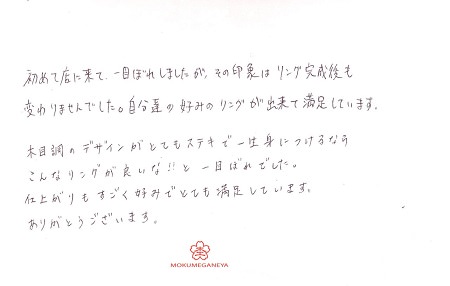 初めて店に来て、一目ぼれしましたが、その印象はリング完成後も
変わりませんでした。自分達の好みのリングが出来て満足しています。
木目調のデザインがとてもステキで一生身につけるなら
こんなリングが良いな!!と一目ぼれでした。
仕上がりもすごく好みでとても満足しています。
ありがとうございます。
MOKUMEGANEYA